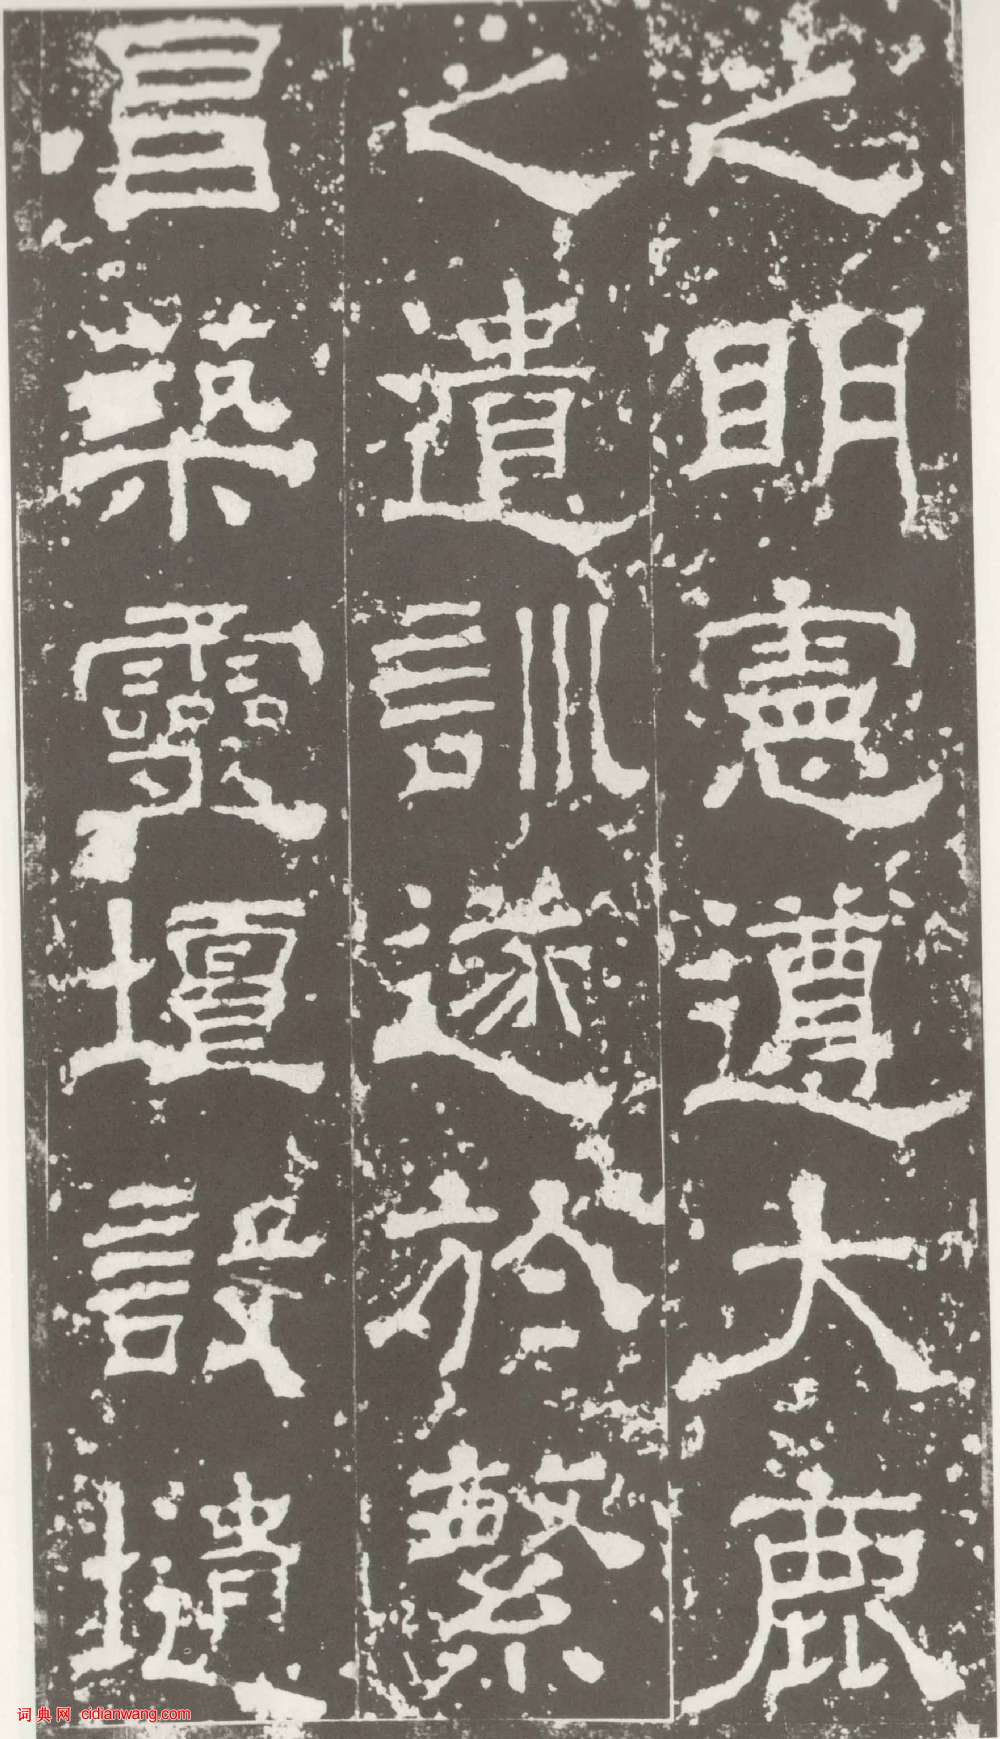 之明憲遵大鹿
之遺訓遂於繁
昌築靈壇設壝
词典网 cidianwang.com